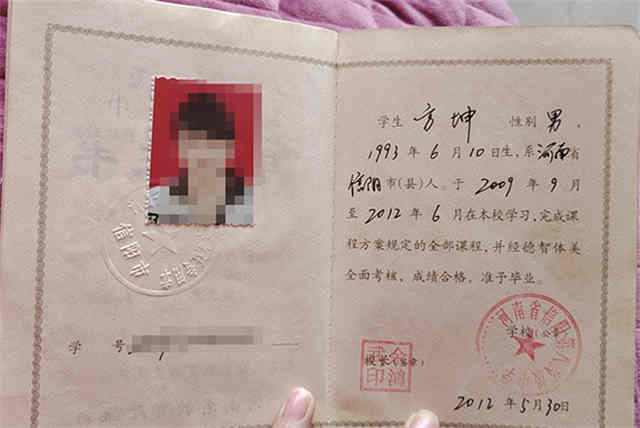 信阳市
学 号
学生 方坤 性别 男，
1993 年 6 月 10 日生，系河南省
信阳市(县)人。于 2009 年 9 月
至 2012 年 6 月在本校学习，完成课
程方案规定的全部课程，并经德智体美
全面考核，成绩合格，准予毕业。
学校(公章)
校长(签章)
2012 年 5 月 30 日